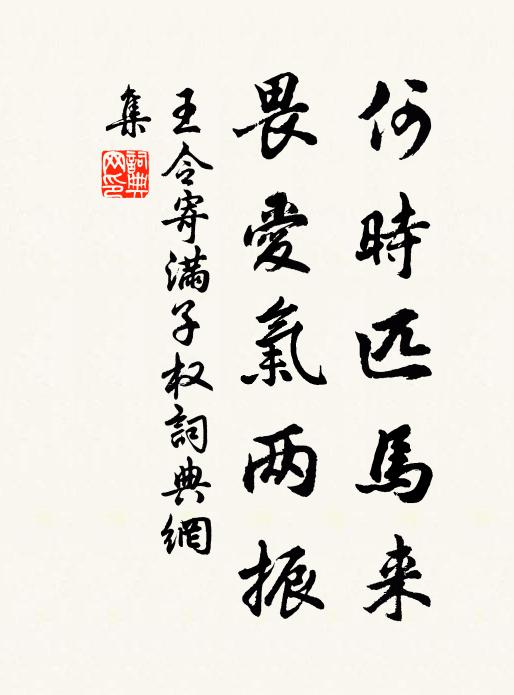 何時匹馬来
畏愛氣两振
王令寄滿子权詞典網
集
詞典网印